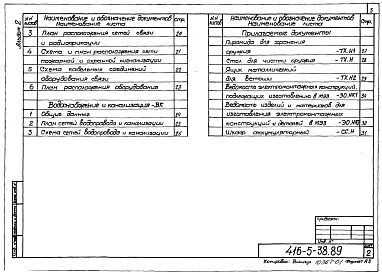 5
Альбом 2
№№ листов
Наименование и обозначение документов
Наименование листа
Стр.
3 План расположения сетей связи
и радиофикации 20
4 Схема и план расположения сети
пожарной и охранной сигнализации 21
5 Схема кабельных соединений
оборудования связи 22
6 План расположения оборудования 23
Водоснабжение и канализация -ВК
1 Общие данные 24
2 План сетей водопровода и канализации 25
3 Схема сетей водопровода и канализации 26
Наименование и обозначение документов
Наименование листа
Стр.
Прилагаемые документы
Пирамида для хранения
оружия -ТХ.Н1 27
Стол для чистки оружия -ТХ.Н 28
Ящик металлический
для ветоши -ТХ.Н2 29
Ведомость электромонтажных конструкций,
подлежащих изготовлению в МЭЗ -ЭО.НК1 30
Ведомость изделий и материалов для
изготовления электромонтажных
конструкций и деталей в МЭЗ -ЭО.НК2 30
Шкаф аккумуляторный -СС.Н 31
Привязан:
Инв. №
416-5-38.89
Лист
2
Копировал:
10367-01
Формат А3